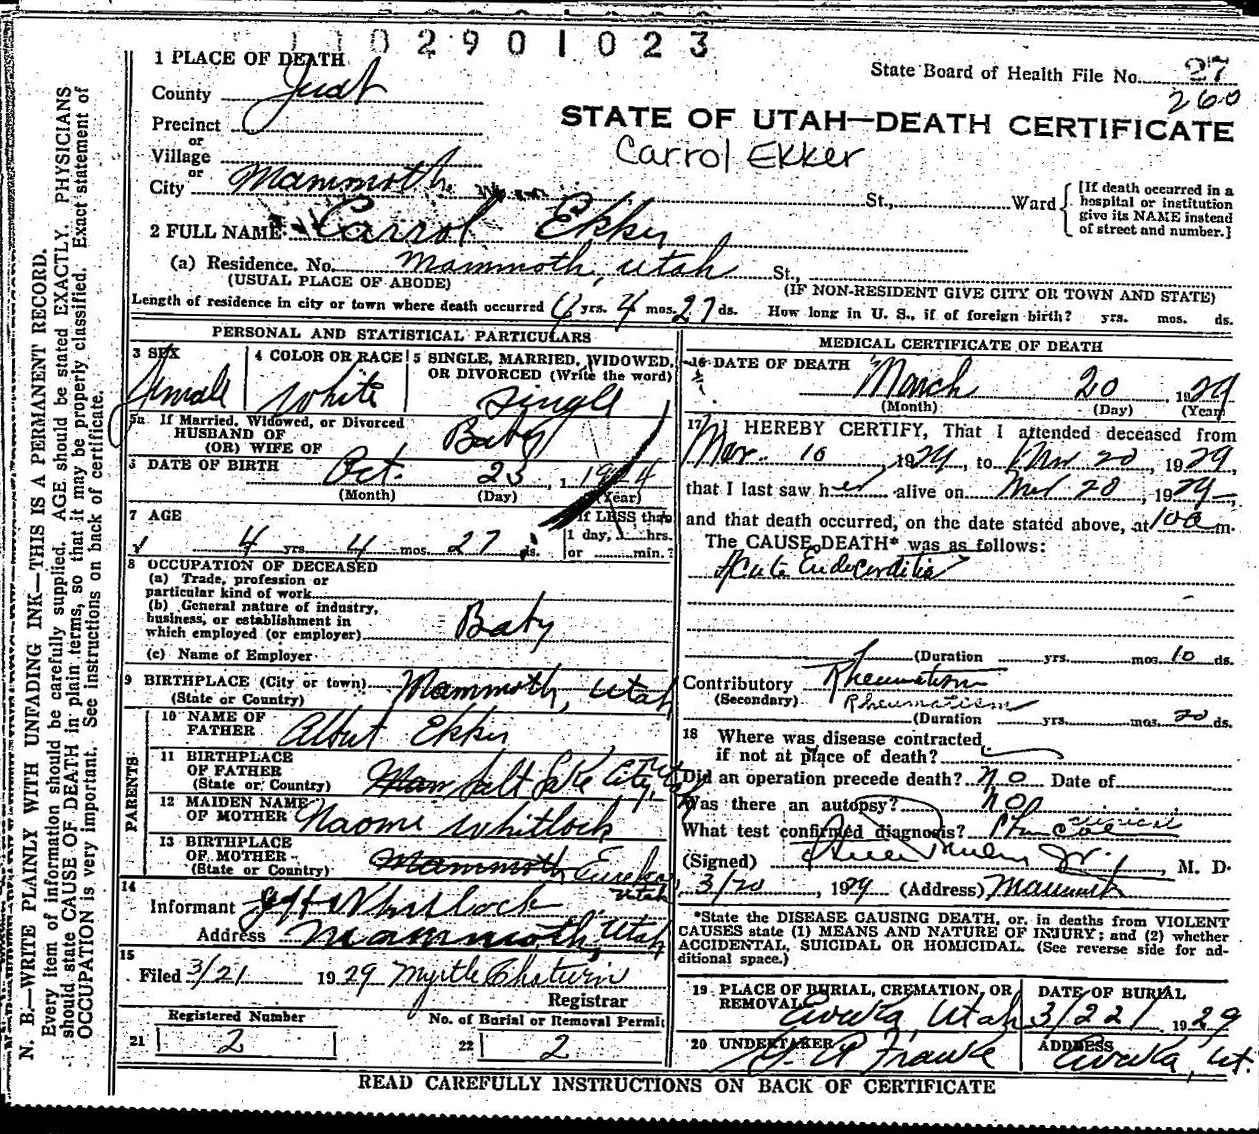 1102901023
1 PLACE OF DEATH
State Board of Health File No. 27
260
County Juab
STATE OF UTAH—DEATH CERTIFICATE
Precinct
or
Carrol Ekker
Village
or
City Mammoth St., Ward
[If death occurred in a
hospital or institution
give its NAME instead
of street and number.]
2 FULL NAME Carrol Ekker
(a) Residence. No. Mammoth, Utah St.,
(USUAL PLACE OF ABODE)
(IF NON-RESIDENT GIVE CITY OR TOWN AND STATE)
Length of residence in city or town where death occurred yrs. 4 mos. 27 ds. How long in U. S., if of foreign birth? yrs. mos. ds.
PERSONAL AND STATISTICAL PARTICULARS
3 SEX
female
4 COLOR OR RACE
White
5 SINGLE, MARRIED, WIDOWED,
OR DIVORCED (Write the word)
Single
5a If Married, Widowed, or Divorced
HUSBAND OF
(OR) WIFE OF
Baby
DATE OF BIRTH Oct. 23, 1924
(Month) (Day) (Year)
7 AGE
4 yrs. 4 mos. 27 ds.
If LESS than
1 day, hrs.
or min.?
8 OCCUPATION OF DECEASED
(a) Trade, profession or
particular kind of work
(b) General nature of industry,
business, or establishment in
which employed (or employer) Baby
(c) Name of Employer
9 BIRTHPLACE (City or town) Mammoth, Utah
(State or Country)
PARENTS
10 NAME OF
FATHER Albert Ekker
11 BIRTHPLACE
OF FATHER
(State or Country) Salt Lake City, Utah
12 MAIDEN NAME
OF MOTHER Naomi Whitlock
13 BIRTHPLACE
OF MOTHER
(State or Country) Mammoth Eureka
Utah
14
Informant Whitlock
Address Mammoth, Utah
15
Filed 3/21 1929 Myrtle Chatwin
Registrar
Registered Number
21 2
No. of Burial or Removal Permit
22 2
MEDICAL CERTIFICATE OF DEATH
16 DATE OF DEATH
March 20 1929
(Month) (Day) (Year)
17 I HEREBY CERTIFY, That I attended deceased from
Mar. 10, 1929, to Mar 20, 1929,
that I last saw her alive on Mar 20, 1929
and that death occurred, on the date stated above, at 10 a m.
The CAUSE DEATH* was as follows:
Acute Endocarditis
(Duration yrs. mos. 10 ds.
Contributory Rheumatism
(Secondary) Rheumatism
(Duration yrs. mos. 20 ds.
18 Where was disease contracted
if not at place of death?
Did an operation precede death? no Date of
Was there an autopsy? no
What test confirmed diagnosis? Clinical
(Signed) M. D.
3/20, 1929 (Address) Mammoth
*State the DISEASE CAUSING DEATH, or, in deaths from VIOLENT
CAUSES state (1) MEANS AND NATURE OF INJURY; and (2) whether
ACCIDENTAL, SUICIDAL OR HOMICIDAL. (See reverse side for ad-
ditional space.)
19 PLACE OF BURIAL, CREMATION, OR
REMOVAL Eureka, Utah
DATE OF BURIAL
3/22/ 1929
20 UNDERTAKER
Franke
ADDRESS
Eureka, Ut.
READ CAREFULLY INSTRUCTIONS ON BACK OF CERTIFICATE
N. B.—WRITE PLAINLY WITH UNFADING INK—THIS IS A PERMANENT RECORD.
Every item of information should be carefully supplied. AGE should be stated EXACTLY. PHYSICIANS
should state CAUSE OF DEATH in plain terms, so that it may be properly classified. Exact statement of
OCCUPATION is very important. See instructions on back of certificate.